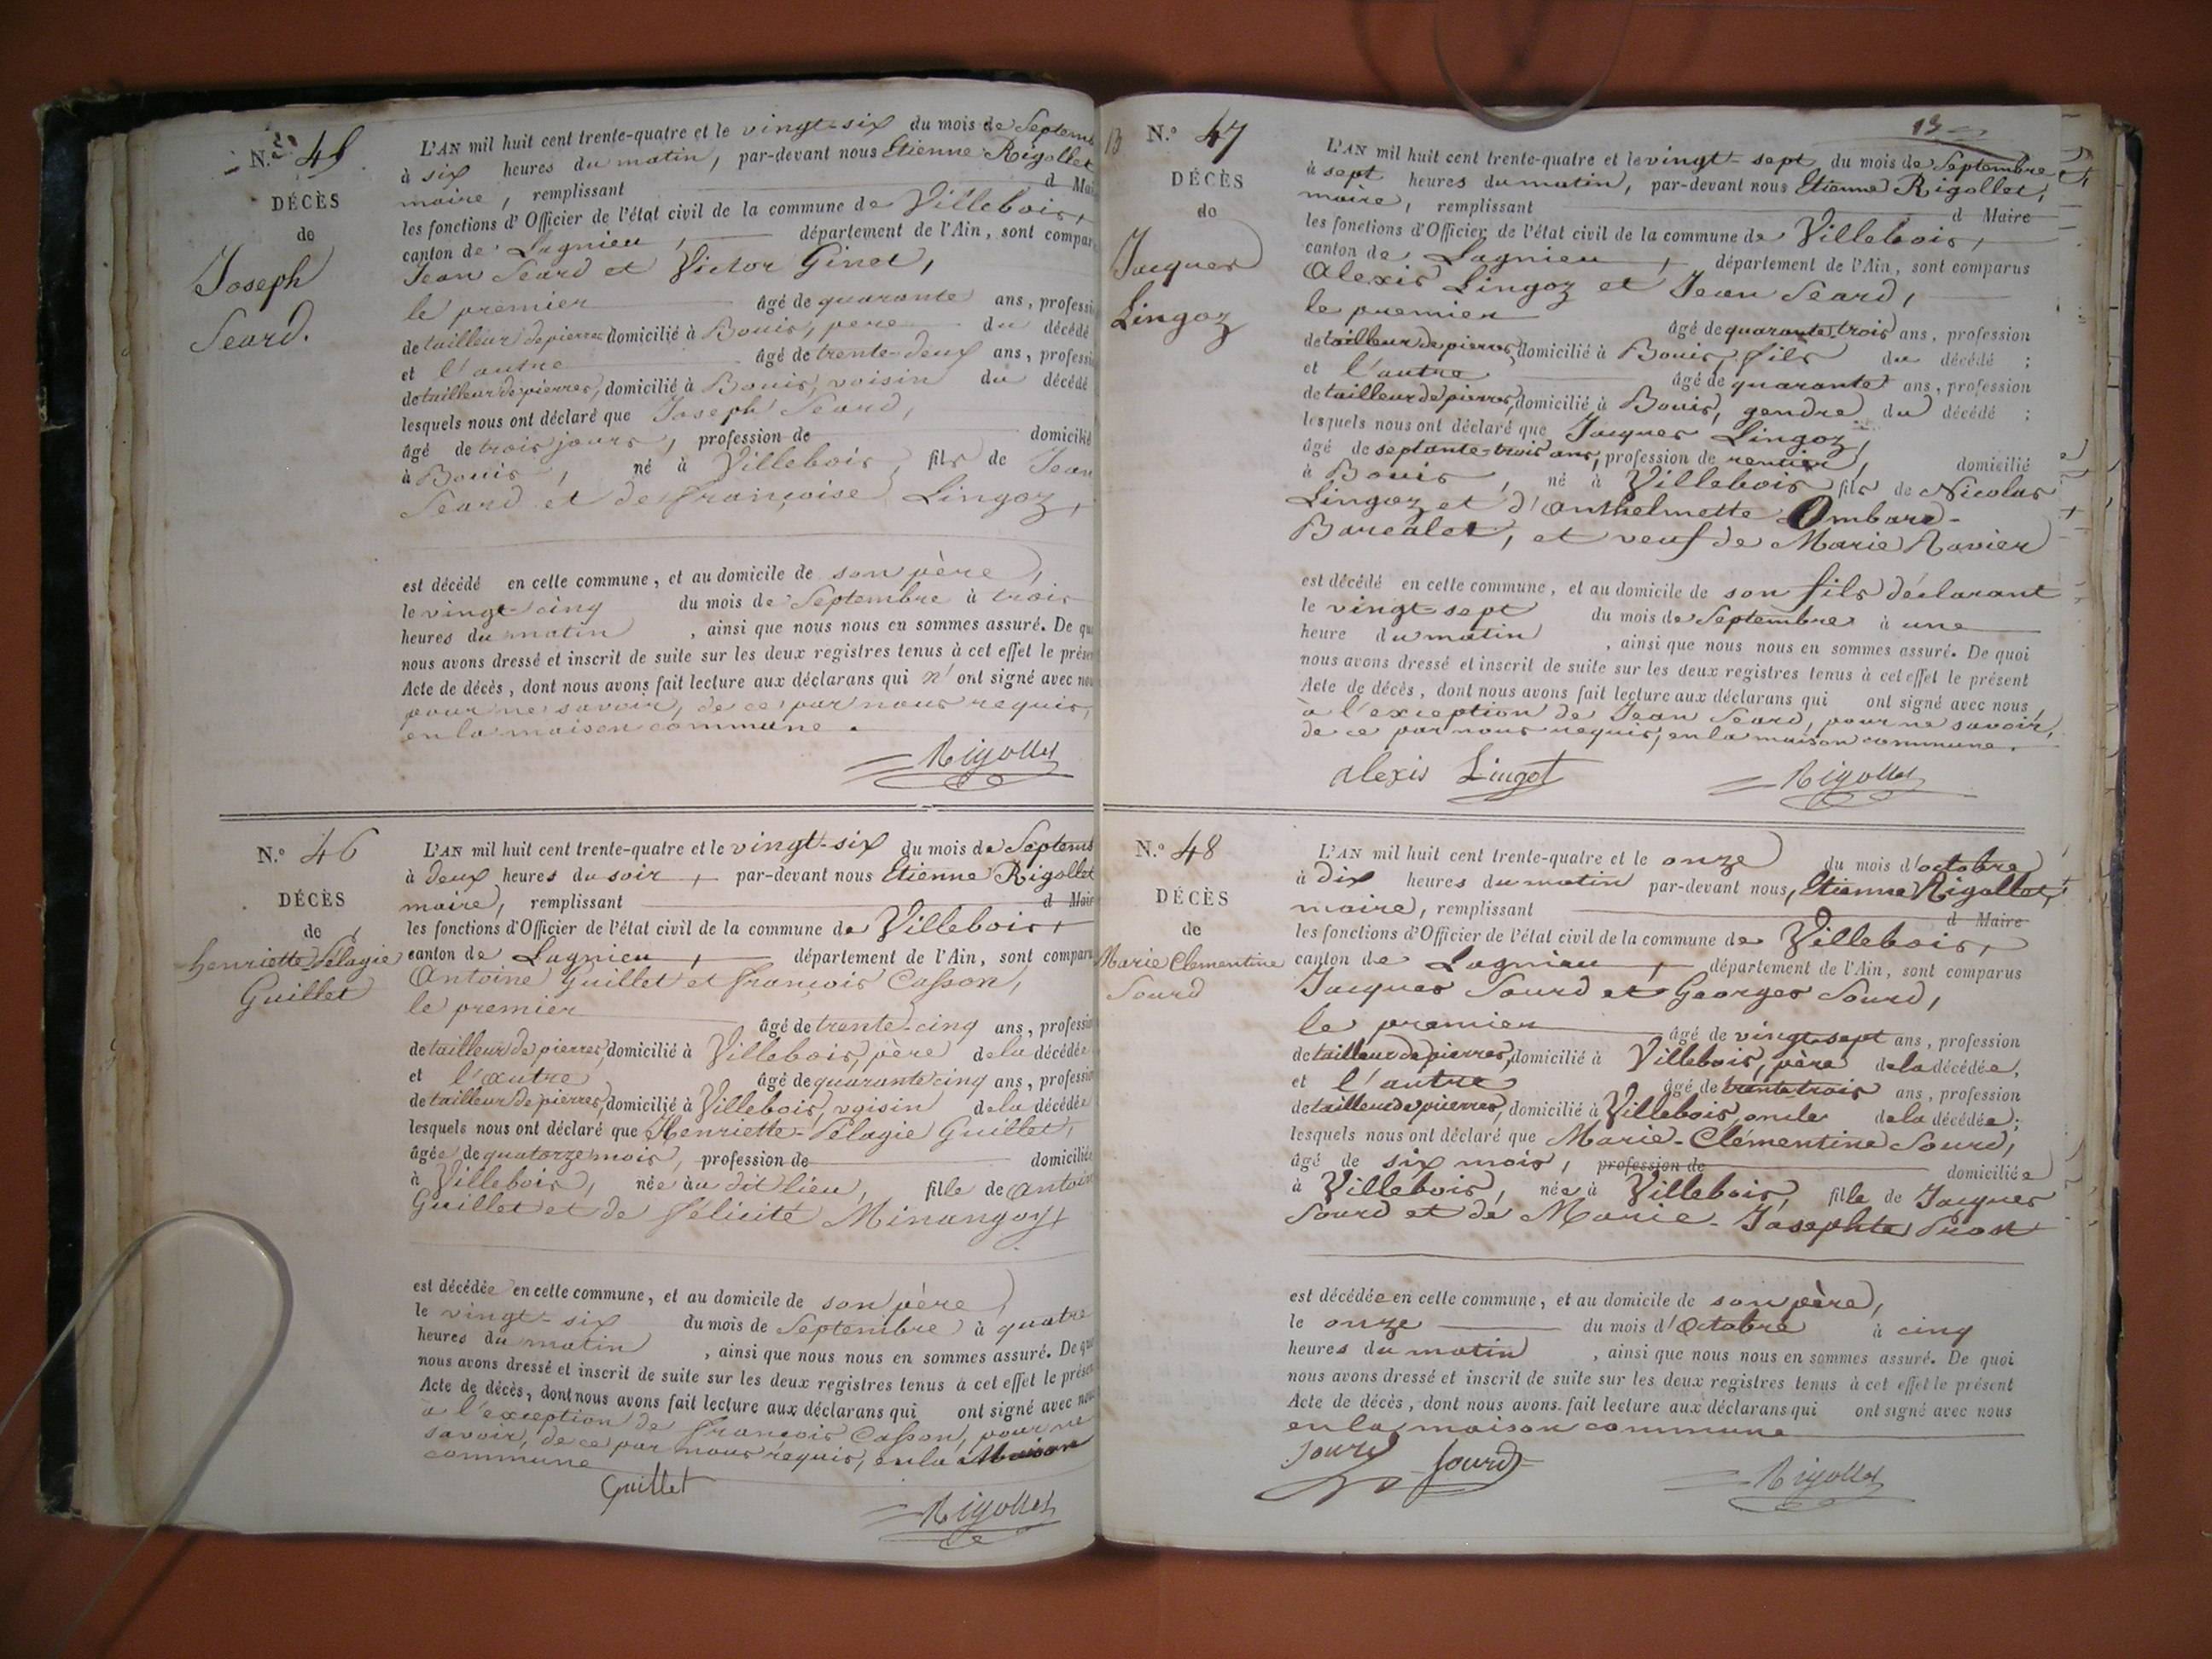 N.º 45
DÉCÈS
de
Joseph
Seard.
L'AN mil huit cent trente-quatre et le vingt-six du mois de Septemb
à six heures du matin, par-devant nous Etienne Rigollet
maire, remplissant d Mai
les fonctions d'Officier de l'état civil de la commune de Villebois,
canton de Lagnieu, département de l'Ain, sont compar
Jean Seard et Victor Ginet,
le premier âgé de quarante ans, professi
de tailleur de pierres domicilié à Bouis, père du décédé
et l'autre âgé de trente-deux ans, professi
de tailleur de pierres, domicilié à Bouis, voisin du décédé
lesquels nous ont déclaré que Joseph Seard,
âgé de trois jours, profession de domicilié
à Bouis, né à Villebois, fils de Jean
Seard et de françoise Lingoz,
est décédé en cette commune, et au domicile de son père,
le vingt-cinq du mois de Septembre à trois
heures du matin, ainsi que nous nous en sommes assuré. De qu
nous avons dressé et inscrit de suite sur les deux registres tenus à cet effet le présen
Acte de décès, dont nous avons fait lecture aux déclarans qui n'ont signé avec nou
pour ne savoir, de ce par nous requis,
en la maison commune.
Rigollet
N.º 46
DÉCÈS
de
henriette Pélagie
Guillet
L'AN mil huit cent trente-quatre et le vingt-six du mois de Septemb
à deux heures du soir, par-devant nous Etienne Rigollet
maire, remplissant d Mair
les fonctions d'Officier de l'état civil de la commune de Villebois,
canton de Lagnieu, département de l'Ain, sont comparu
Antoine Guillet et françois Casson,
le premier âgé de trente-cinq ans, professi
de tailleur de pierres, domicilié à Villebois, père de la décédée
et l'autre âgé de quarante cinq ans, professi
de tailleur de pierres, domicilié à Villebois, voisin de la décédée
lesquels nous ont déclaré que Henriette-Pélagie Guillet,
âgée de quatorze mois, profession de domiciliée
à Villebois, née au dit lieu, fille de Antoin
Guillet et de félicité Minangoy,
est décédée en cette commune, et au domicile de son père,
le vingt-six du mois de Septembre à quatre
heures du matin, ainsi que nous nous en sommes assuré. De qu
nous avons dressé et inscrit de suite sur les deux registres tenus à cet effet le présen
Acte de décès, dont nous avons fait lecture aux déclarans qui ont signé avec nou
à l'exception de françois Casson, pour ne
savoir, de ce par nous requis, en la Maison
commune
Guillet
Rigollet
13
N.º 47
DÉCÈS
de
Jacques
Lingoz
L'AN mil huit cent trente-quatre et le vingt-sept du mois de Septembre
à sept heures du matin, par-devant nous Etienne Rigollet,
maire, remplissant d Maire
les fonctions d'Officier de l'état civil de la commune de Villebois,
canton de Lagnieu, département de l'Ain, sont comparus
Alexis Lingoz et Jean Seard,
le premier âgé de quarante-trois ans, profession
de tailleur de pierres, domicilié à Bouis, fils du décédé;
et l'autre âgé de quarante ans, profession
de tailleur de pierres, domicilié à Bouis, gendre du décédé;
lesquels nous ont déclaré que Jacques Lingoz,
âgé de septante-trois ans, profession de rentier, domicilié
à Bouis, né à Villebois fils de Nicolas
Lingoz et d'Anthelmette Ombard-
Barcalet, et veuf de Marie Ravier
est décédé en cette commune, et au domicile de son fils déclarant
le vingt-sept du mois de Septembre à une
heure du matin, ainsi que nous nous en sommes assuré. De quoi
nous avons dressé et inscrit de suite sur les deux registres tenus à cet effet le présent
Acte de décès, dont nous avons fait lecture aux déclarans qui ont signé avec nous,
à l'exception de Jean Seard, pour ne savoir,
de ce par nous requis, en la maison commune.
alexis Lingot
Rigollet
N.º 48
DÉCÈS
de
Marie Clementine
Sourd
L'AN mil huit cent trente-quatre et le onze du mois d'octobre
à dix heures du matin par-devant nous, Etienne Rigollet,
maire, remplissant d Maire
les fonctions d'Officier de l'état civil de la commune de Villebois,
canton de Lagnieu, département de l'Ain, sont comparus
Jacques Sourd et Georges Sourd,
le premier âgé de vingt-sept ans, profession
de tailleur de pierres, domicilié à Villebois, père de la décédée,
et l'autre âgé de trente trois ans, profession
de tailleur de pierres, domicilié à Villebois, oncle de la décédée;
lesquels nous ont déclaré que Marie-Clémentine Sourd,
âgé de six mois, profession de domiciliée
à Villebois, née à Villebois, fille de Jacques
Sourd et de Marie-Josephte Prost
est décédée en cette commune, et au domicile de son père,
le onze du mois d'Octobre à cinq
heures du matin, ainsi que nous nous en sommes assuré. De quoi
nous avons dressé et inscrit de suite sur les deux registres tenus à cet effet le présent
Acte de décès, dont nous avons fait lecture aux déclarans qui ont signé avec nous
en la maison commune
Sourd Sourd
Rigollet